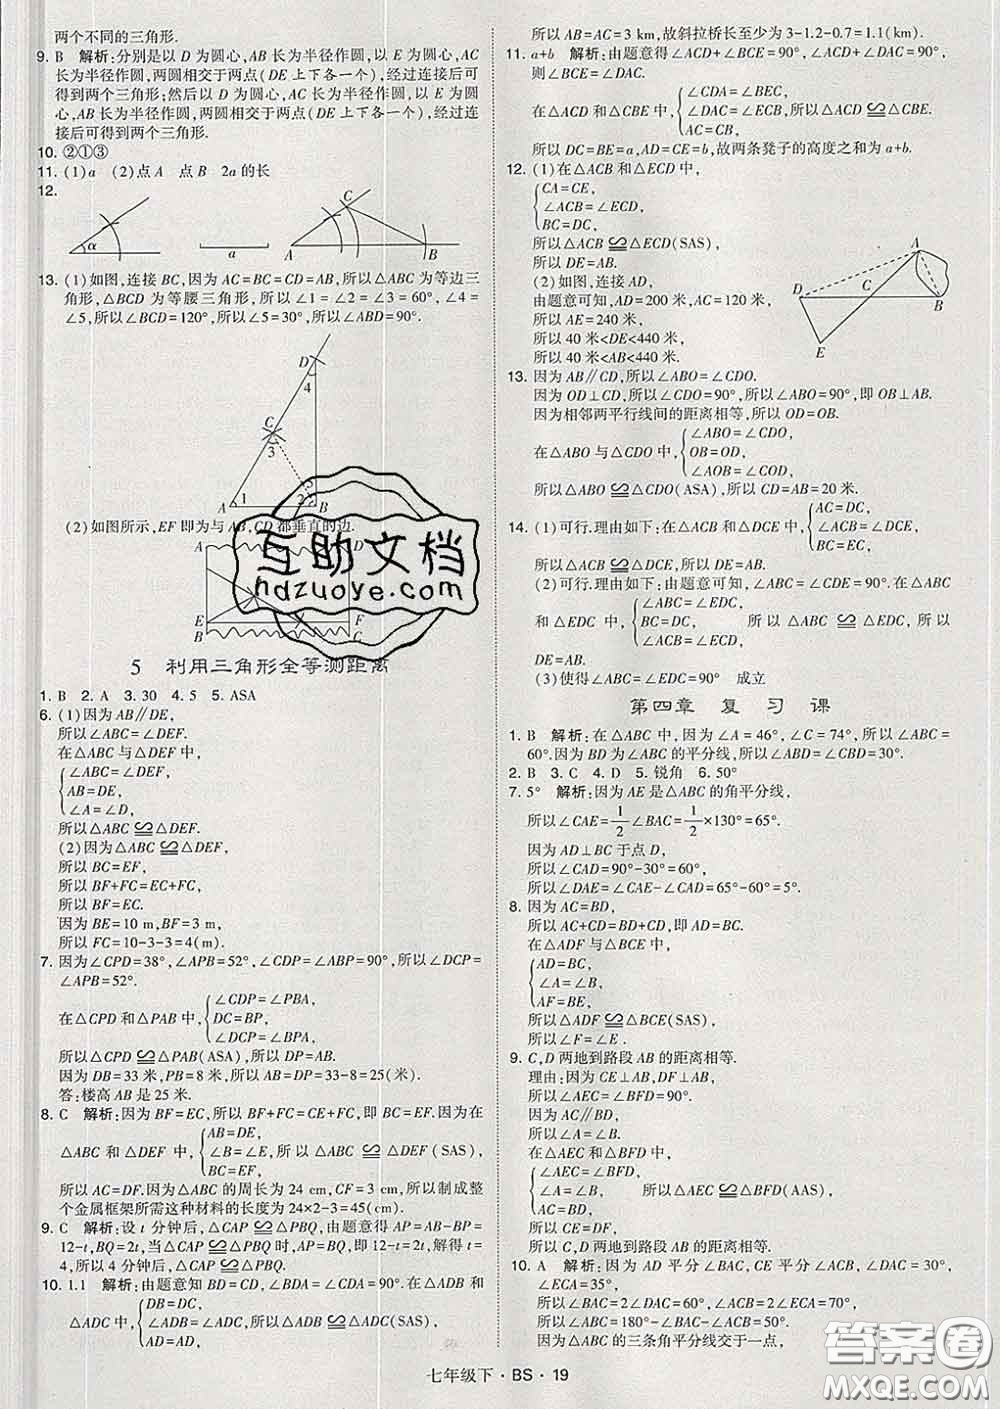 两个不同的三角形.
9. B 解析:分别是以 D 为圆心,AB 长为半径作圆,以 E 为圆心,AC
长为半径作圆,两圆相交于两点(DE 上下各一个),经过连接后可
得到两个三角形;然后以 D 为圆心,AC 长为半径作圆,以 E 为圆
心,AB 长为半径作圆,两圆相交于两点(DE 上下各一个),经过连
接后可得到两个三角形.
10. ②①③
11. (1)a (2)点 A 点 B 2a 的长
12.
α a A C B
13. (1)如图,连接 BC,因为 AC=BC=CD=AB,所以△ABC 为等边三
角形,△BCD 为等腰三角形,所以∠1=∠2=∠3=60°,∠4=
∠5,所以∠BCD=120°,所以∠5=30°,所以∠ABD=90°.
D
4
C
3
5
A 1 2 B
(2)如图所示,EF 即为与 AB,CD 都垂直的边.
A D
E F
B C
5 利用三角形全等测距离
1. B 2. A 3. 30 4. 5 5. ASA
6. (1)因为 AB∥DE,
所以∠ABC=∠DEF.
在△ABC 与△DEF 中,
∠ABC=∠DEF,
AB=DE,
∠A=∠D,
所以△ABC≌△DEF.
(2)因为△ABC≌△DEF,
所以 BC=EF,
所以 BF+FC=EC+FC,
所以 BF=EC.
因为 BE=10 m,BF=3 m,
所以 FC=10-3-3=4(m).
7. 因为∠CPD=38°,∠APB=52°,∠CDP=∠ABP=90°,所以∠DCP
=∠APB=52°.
在△CPD 和△PAB 中,
∠CDP=∠PBA,
DC=BP,
∠DCP=∠BPA,
所以△CPD≌△PAB(ASA),所以 DP=AB.
因为 DB=33 米,PB=8 米,所以 AB=DP=33-8=25(米).
答:楼高 AB 是 25 米.
8. C 解析:因为 BF=EC,所以 BF+FC=CE+FC,即 BC=EF.因为在
△ABC 和△DEF 中,
AB=DE,
∠B=∠E,所以△ABC≌△DEF(SAS),
BC=EF,
所以 AC=DF.因为△ABC 的周长为 24 cm,CF=3 cm,所以制成整
个金属框架所需这种材料的长度为 24×2-3=45(cm).
9. C 解析:设 t 分钟后,△CAP≌△PBQ,由题意得 AP=AB-BP=
12-t,BQ=2t,当△CAP≌△PBQ 时,AP=BQ,即 12-t=2t,解得 t=
4,所以 4 分钟后,△CAP≌△PBQ.
10. 1.1 解析:由题意知 BD=CD,∠BDA=∠CDA=90°.在△ADB 和
△ADC 中,
DB=DC,
∠ADB=∠ADC,所以△ADB≌△ADC(SAS),
AD=AD,
所以 AB=AC=3 km,故斜拉桥长至少为 3-1.2-0.7=1.1(km).
11. a+b 解析:由题意得∠ACD+∠BCE=90°,∠ACD+∠DAC=90°,
则∠BCE=∠DAC.
在△ACD 和△CBE 中,
∠CDA=∠BEC,
∠DAC=∠ECB,所以△ACD≌△CBE(AAS),
AC=CB,
所以 DC=BE=a,AD=CE=b,故两条凳子的高度之和为 a+b.
12. (1)在△ACB 和△ECD 中,
CA=CE,
∠ACB=∠ECD,
BC=DC,
所以△ACB≌△ECD(SAS),
所以 DE=AB.
(2)如图,连接 AD,
由题意可知,AD=200 米,AC=120 米,
所以 AE=240 米,
所以 40 米<DE<440 米,
所以 40 米<AB<440 米.
A
D C B
E
13. 因为 AB∥CD,所以∠ABO=∠CDO.
因为 OD⊥CD,所以∠CDO=90°,所以∠ABO=90°,即 OB⊥AB.
因为相邻两平行线间的距离相等,所以 OD=OB.
在△ABO 与△CDO 中,
∠ABO=∠CDO,
OB=OD,
∠AOB=∠COD,
所以△ABO≌△CDO(ASA),所以 CD=AB=20 米.
14. (1)可行.理由如下:在△ACB 和△DCE 中,
AC=DC,
∠ACB=∠DCE,
BC=EC,
所以△ACB≌△DCE,所以 DE=AB.
(2)可行.理由如下:由题意可知,∠ABC=∠CDE=90°.在△ABC
和△EDC 中,
∠ABC=∠EDC,
BC=DC,
∠ACB=∠ECD,
所以△ABC≌△EDC,所以 DE=AB.
(3)使得∠ABC=∠EDC=90° 成立
第四章 复习课
1. B 解析:在△ABC 中,因为∠A=46°,∠C=74°,所以∠ABC=
60°.因为 BD 为∠ABC 的平分线,所以∠ABD=∠CBD=30°.
2. B 3. C 4. D 5. 锐角 6. 50°
7. 5° 解析:因为 AE 是△ABC 的角平分线,
所以∠CAE=1/2∠BAC=1/2×130°=65°.
因为 AD⊥BC 于点 D,
所以∠CAD=90°-30°=60°,
所以∠DAE=∠CAE-∠CAD=65°-60°=5°.
8. 因为 AC=BD,
所以 AC+CD=BD+CD,即 AD=BC.
在△ADF 与△BCE 中,
AD=BC,
∠A=∠B,
AF=BE,
所以△ADF≌△BCE(SAS),
所以∠F=∠E.
9. C,D 两地到路段 AB 的距离相等.
理由:因为 CE⊥AB,DF⊥AB,
所以∠AEC=∠BFD=90°.
因为 AC∥BD,
所以∠A=∠B.
在△AEC 和△BFD 中,
∠AEC=∠BFD,
∠A=∠B,
AC=BD,
所以△AEC≌△BFD(AAS),
所以 CE=DF,
所以 C,D 两地到路段 AB 的距离相等.
10. A 解析:因为 AD 平分∠BAC,CE 平分∠ACB,∠DAC=30°,
∠ECA=35°,
所以∠BAC=2∠DAC=60°,∠ACB=2∠ECA=70°,
所以∠ABC=180°-∠BAC-∠ACB=50°.
因为△ABC 的三条角平分线交于一点,
七年级下·BS·19
互助文档
hdzuoye.com
答案圈
MXQE.COM